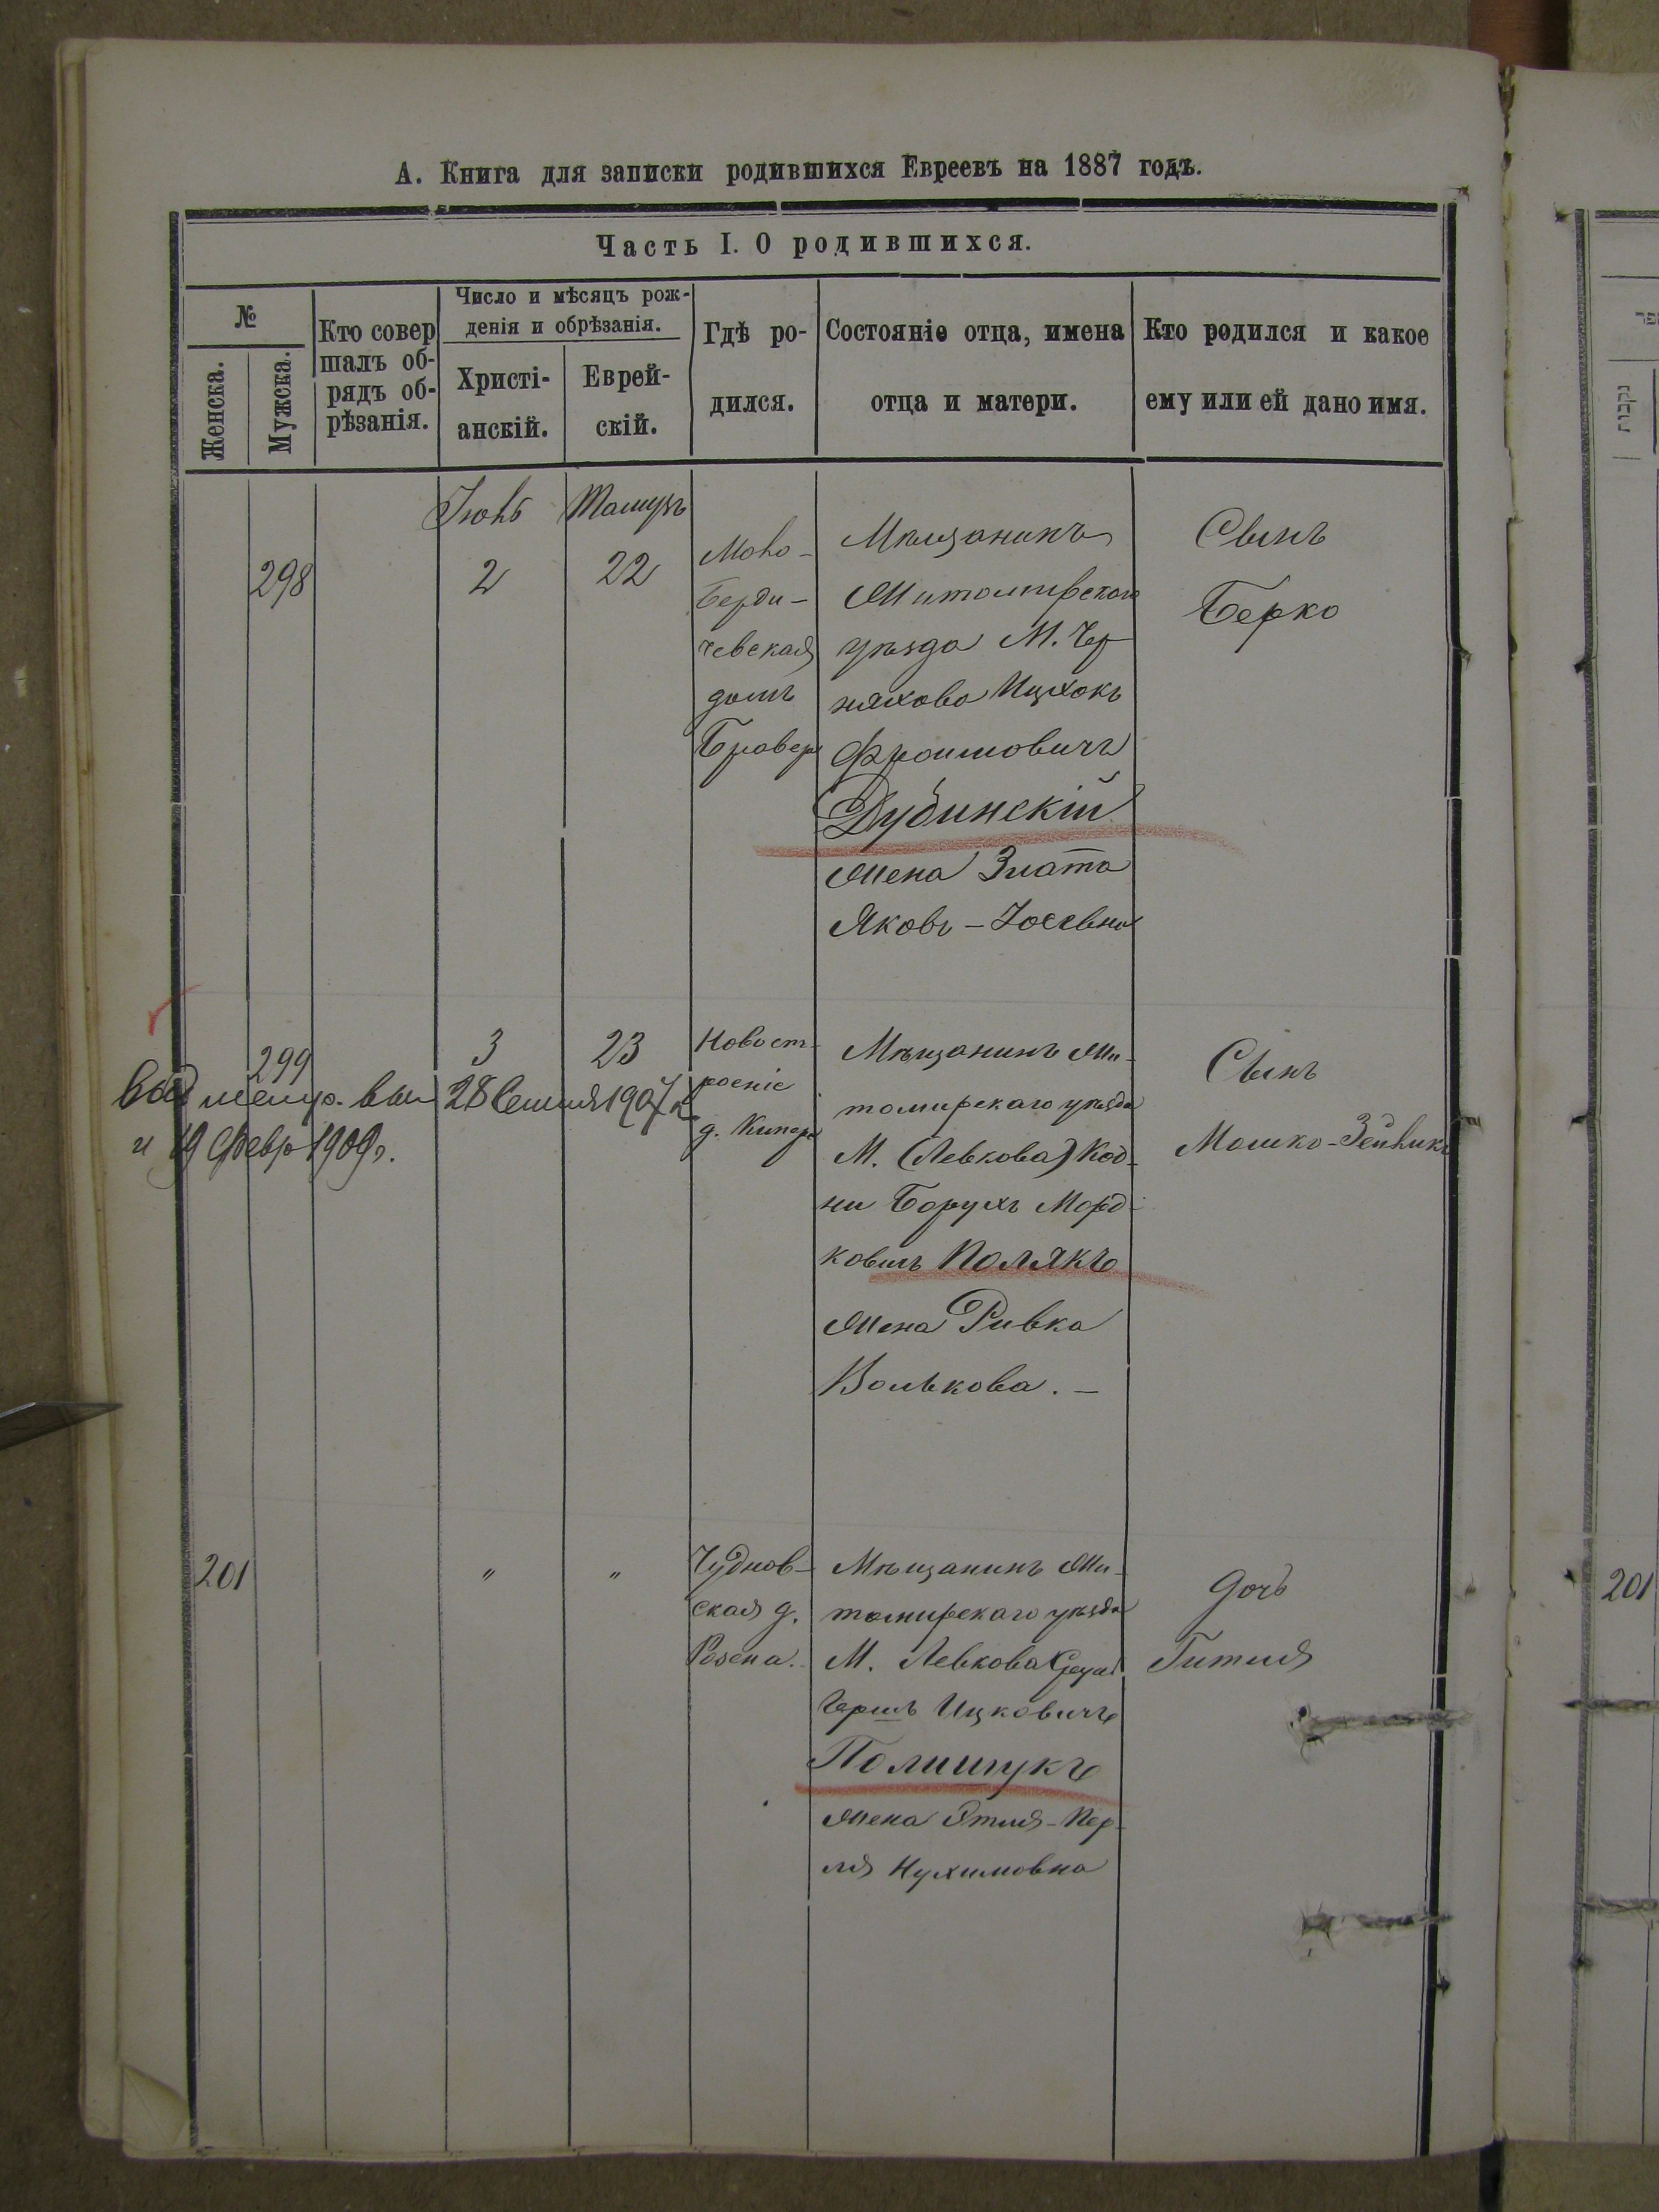 А. Книга для записки родившихся Евреевъ на 1887 годъ.
Часть I. О родившихся.
№
Женска.
Мужска.
Кто совер
шалъ об-
рядъ об-
рѣзанія.
Число и мѣсяцъ рож-
денія и обрѣзанія.
Христі-
анскій.
Еврей-
скій.
Гдѣ ро-
дился.
Состояніе отца, имена
отца и матери.
Кто родился и какое
ему или ей дано имя.
298
2
22
Берди-
чевская
домъ
Бравер
Мѣщанинъ
Житомирскаго
уѣзда М. Чер
няхова Ицхокъ
Фроимовичъ
Дубинскій
жена Злата
Яковъ-Іосевна
Сынъ
Берко
299
3
23
Новост-
роеніе
д. Кипера
Мѣщанинъ Жи-
томирскаго уѣзда
М. (Левкова) Код-
ни Борухъ Морд-
ковичъ Полякъ
жена Ривка
Волькова. -
Сынъ
Мошко-
28 1907
и 19 Февр 1909 г.
201
"
"
Чуднов-
ская д.
Розена.
Мѣщанинъ Жи-
томирскаго уѣзда
М. Левкова
Гершъ Ицковичъ
Полищукъ
жена Этля-Пер-
ля Нухимовна
Дочь
Гитля
נקבות
201